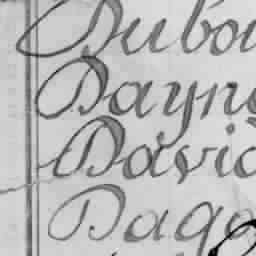 Dubo
Dayn
David
Dago